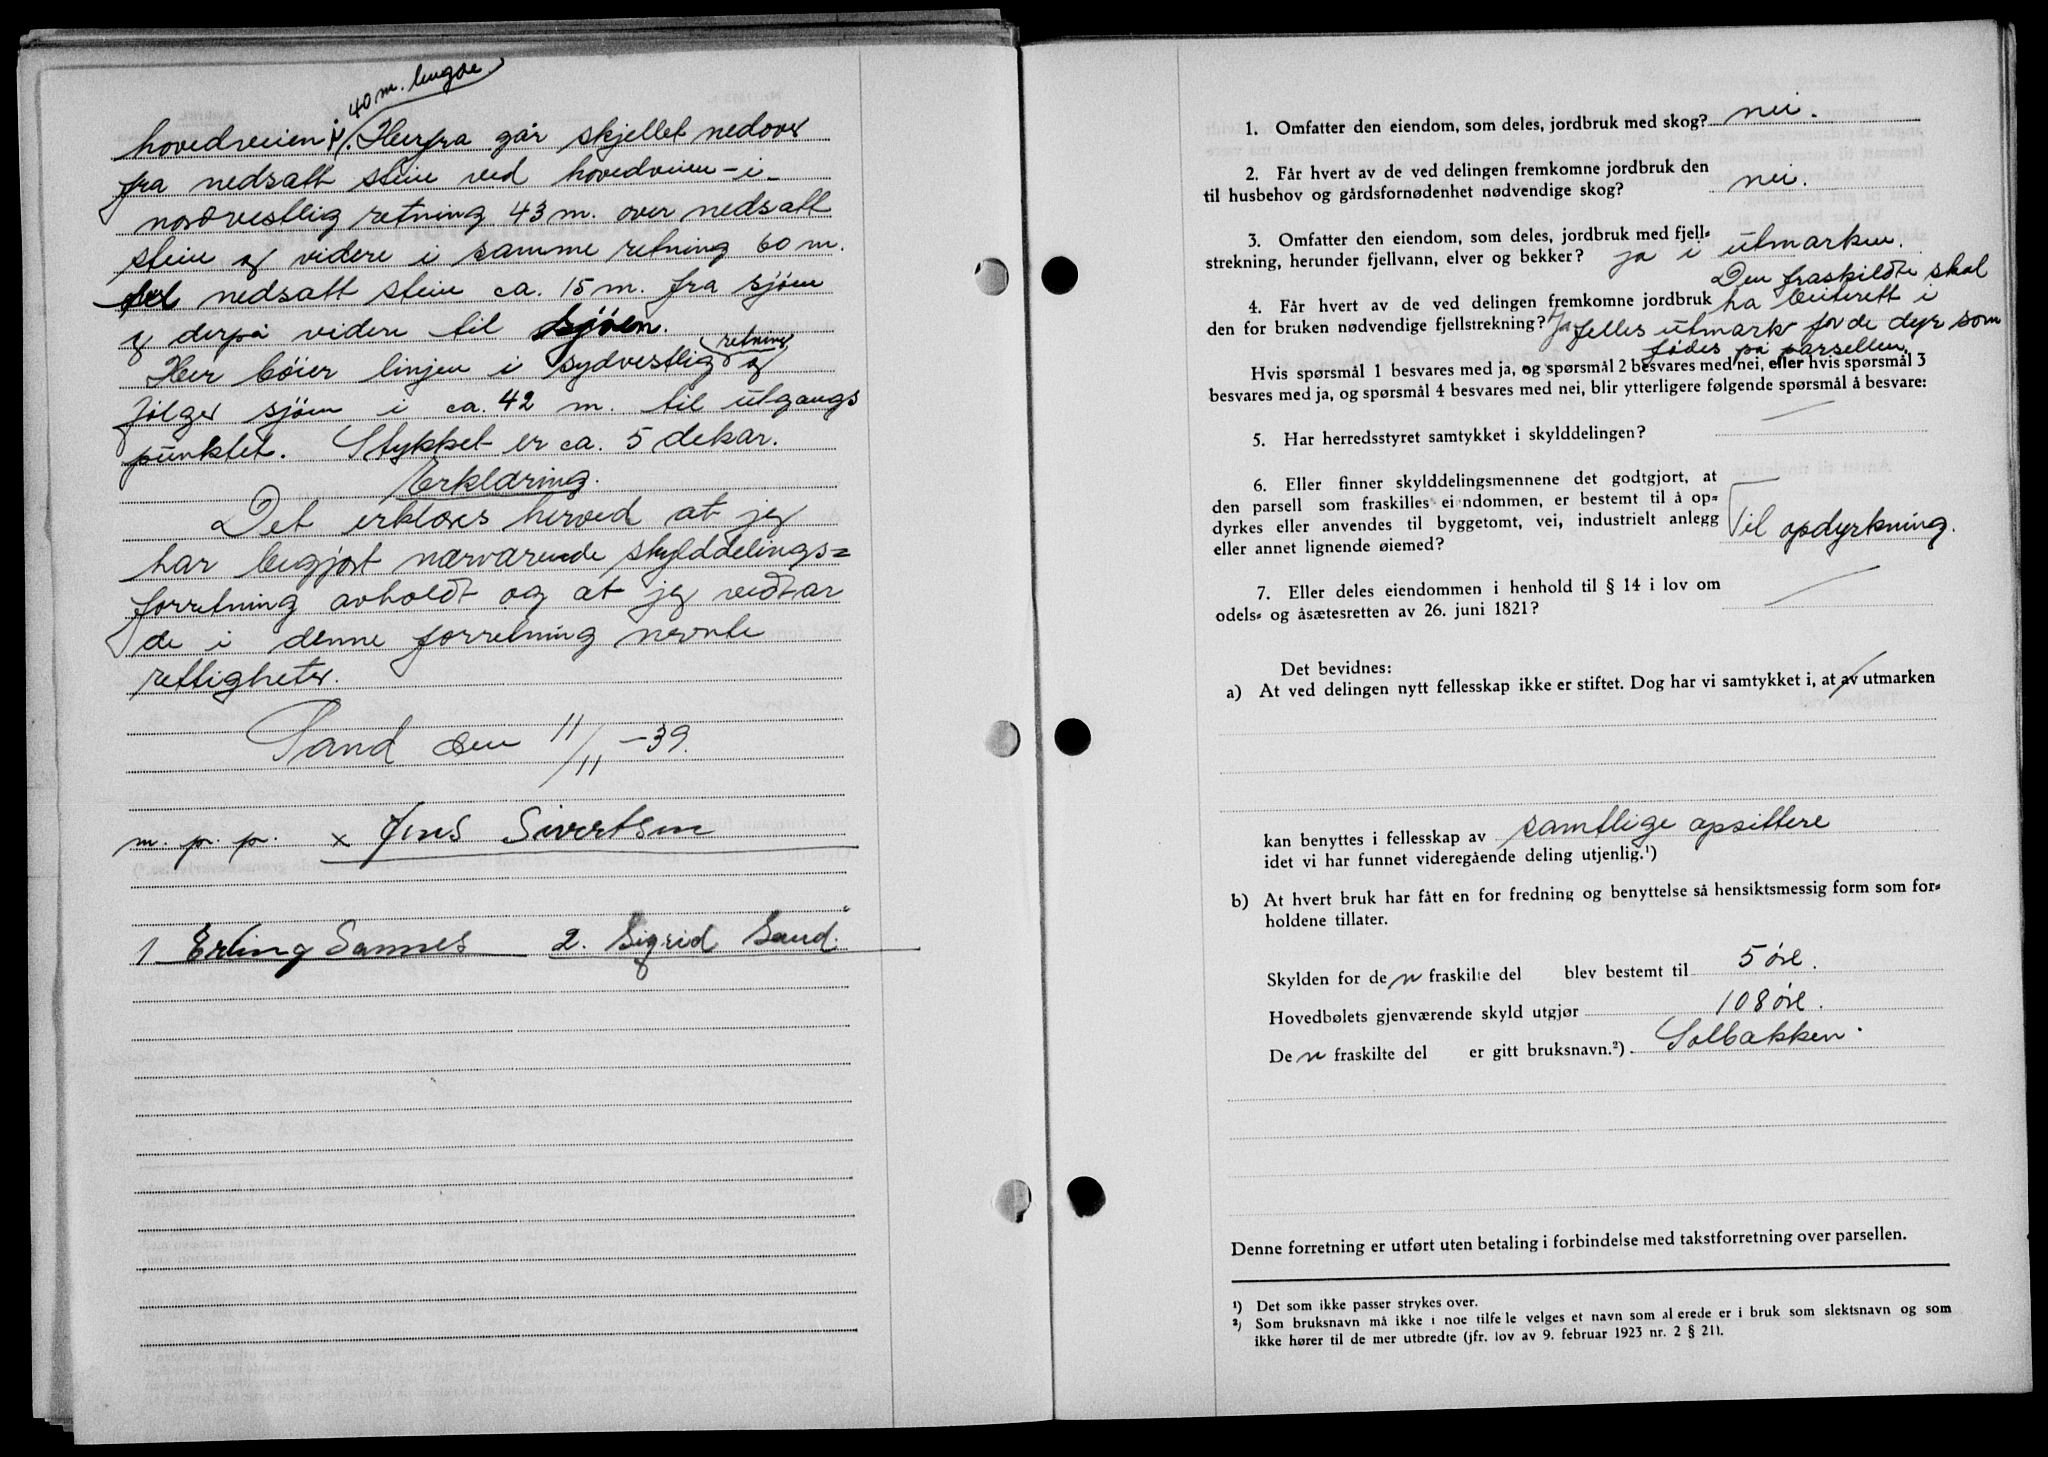 40 m. lengde.
hovedveien i/. Herfra går skjellet nedover
fra nedsatt stein ved hovedveien - i -
nordvestlig retning 43 m. over nedsatt
stein og videre i samme retning 60 m.
til nedsatt stein ca. 15 m. fra sjøen
og derpå videre til sjøen.
retning
Her bøier linjen i sydvestlig og
følger sjøen i ca. 42 m. til utgangs
punktet. Stykket er ca. 5 dekar.
Erklæring.
Det erklæres herved at jeg
har begjært nærværende skylddelings=
forretning avholdt og at jeg vedtar
de i denne forretning nevnte
rettigheter.
Sand den 11/11 - 39.
m. p. p. x Jens Sivertsen
1 Erling Sannes 2. Sigrid Sand.
1. Omfatter den eiendom, som deles, jordbruk med skog? nei.
2. Får hvert av de ved delingen fremkomne jordbruk den
til husbehov og gårdsfornødenhet nødvendige skog? nei.
3. Omfatter den eiendom, som deles, jordbruk med fjell=
strekning, herunder fjellvann, elver og bekker? ja i utmarken.
Den fraskildte skal
4. Får hvert av de ved delingen fremkomne jordbruk ha beiterett i
den for bruken nødvendige fjellstrekning? Ja felles utmark for de dyr som
fødes på parsellen.
Hvis spørsmål 1 besvares med ja, og spørsmål 2 besvares med nei, eller hvis spørsmål 3
besvares med ja, og spørsmål 4 besvares med nei, blir ytterligere følgende spørsmål å besvare:
5. Har herredsstyret samtykket i skylddelingen?
6. Eller finner skylddelingsmennene det godtgjort, at
den parsell som fraskilles ei ndommen, er bestemt til å op=
dyrkes eller anvendes til byggetomt, vei, industrielt anlegg
eller annet lignende øiemed? Til opdyrkning.
7. Eller deles eiendommen i henhold til § 14 i lov om
odels= og åsætesretten av 26. juni 1821?
Det bevidnes:
a) At ved delingen nytt fellesskap ikke er stiftet. Dog har vi samtykket i, at av utmarken
kan benyttes i fellesskap av samtlige opsittere
idet vi har funnet videregående deling utjenlig.¹)
b) At hvert bruk har fått en for fredning og benyttelse så hensiktsmessig form som for=
holdene tillater.
Skylden for de n fraskilte del blev bestemt til 5 øre.
Hovedbølets gjenværende skyld utgjør 108 øre.
De n fraskilte del er gitt bruksnavn.²) Solbakken.
Denne forretning er utført uten betaling i forbindelse med takstforretning over parsellen.
¹) Det som ikke passer strykes over.
²) Som bruksnavn må ikke i noe tilfe le velges et navn som al erede er i bruk som slektsnavn og som
ikke hører til de mer utbredte (jfr. lov av 9. februar 1923 nr. 2 § 21).